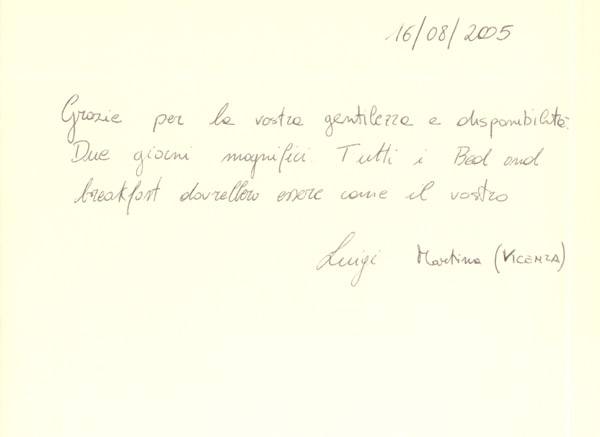 16/08/2005
Grazie per la vostra gentilezza e disponibilità.
Due giorni magnifici. Tutti i Bed and
breakfast dovrebbero essere come il vostro
Luigi Martina (VICENZA)